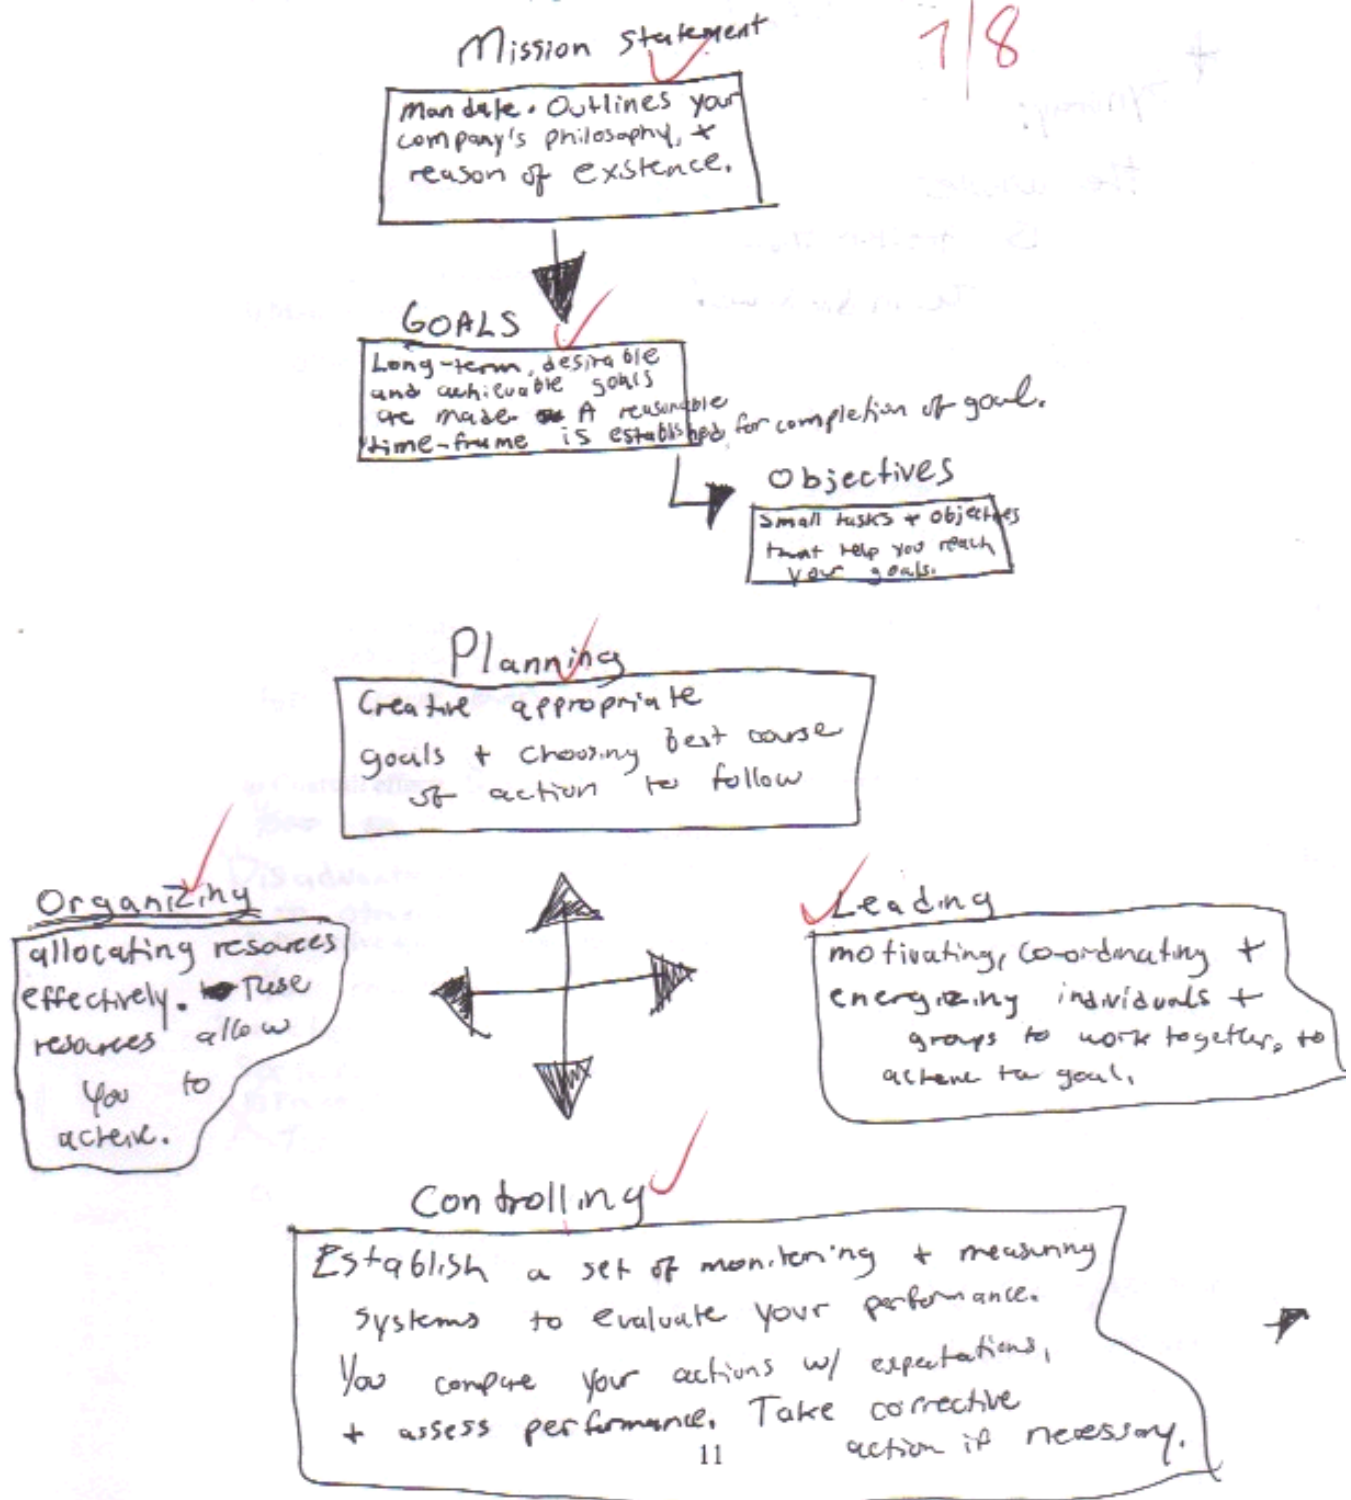 Mission Statement
7/8
Mandate. Outlines your
company's philosophy, +
reason of existence.
GOALS
Long-term, desirable
and achievable goals
are made. A reasonable
time-frame is established for completion of goal.
Objectives
Small tasks + objectives
that help you reach
your goals.
Planning
Creative appropriate
goals + choosing best course
of action to follow
Organizing
allocating resources
effectively. These
resources allow
you to
acheive.
Leading
motivating, co-ordinating +
energizing individuals +
groups to work together, to
acheive goal.
Controlling
Establish a set of monitering + measuring
systems to evaluate your performance.
You compare your actions w/ expectations,
+ assess performance. Take corrective
action if necessary.
11